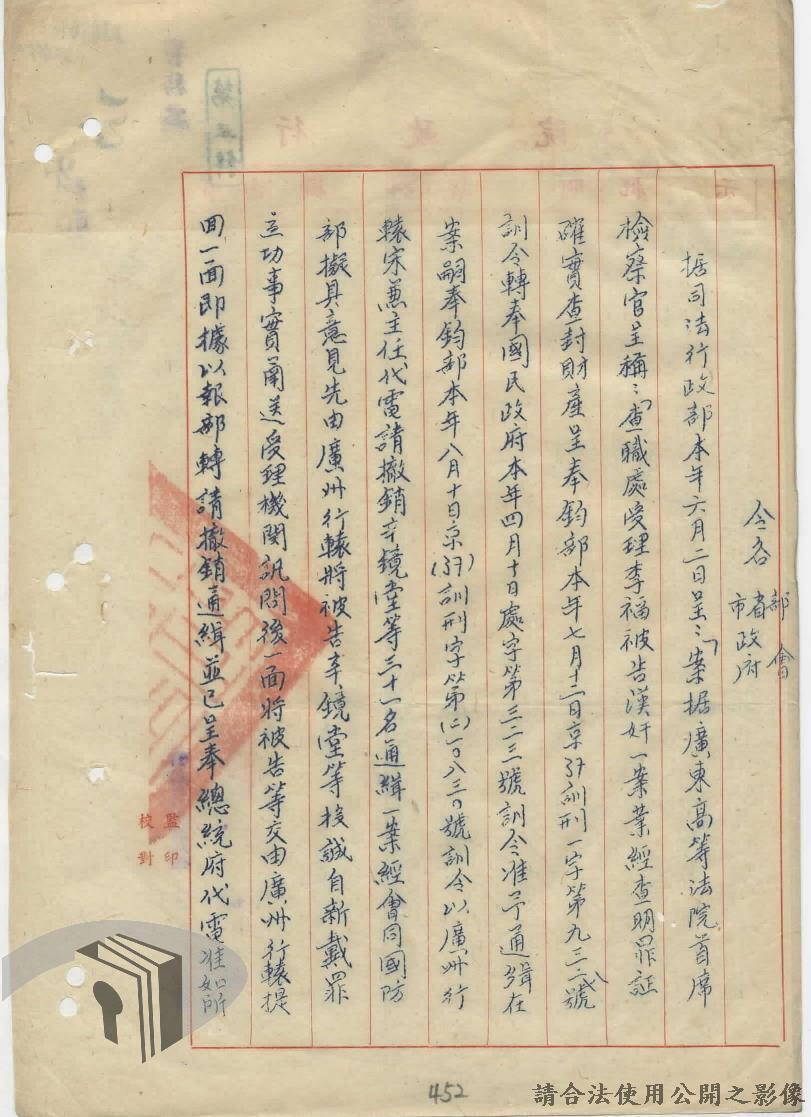 令各
部會
省政府
市
据司法行政部本年六月二日呈：「案据廣東高等法院首席
檢察官呈稱：「查職處受理李福被告漢奸一案業經查明罪証
確實查封財產呈奉鈞部本年七月十二日京37訓刑一字第九三六號
訓令轉奉國民政府本年四月十日處字第三二三號訓令准予通緝在
案嗣奉鈞部本年八月十日京(37)訓刑字第(二)一〇八三〇號訓令以廣州行
轅宋兼主任代電請撤銷辛鏡堂等三十一名通緝一案經會同國防
部擬具意見先由廣州行轅將被告辛鏡堂等投誠自新戴罪
立功事實函送受理機関訊問後一面將被告等交由廣州行轅提
回一面即據以報部轉請撤銷通緝並已呈奉總統府代電准如所
監印
校對
452
請合法使用公開之影像